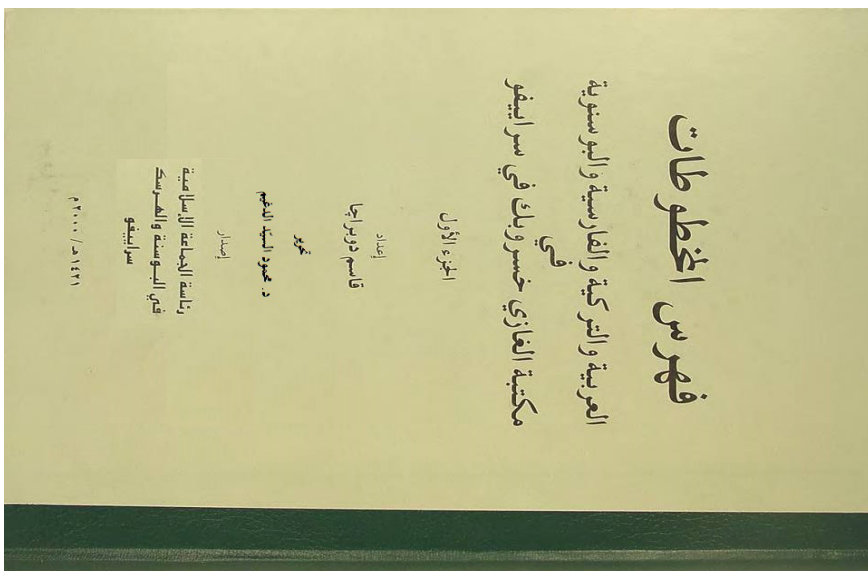 فهرس المخطوطات
العربية والتركية والفارسية والبوسنوية
في
مكتبة الغازي خسرو بك في سراييفو
الجزء الأول
إعداد
قاسم دوبراچا
تحرير
د. محمود السيّد الدغيم
إصدار
رئاسة الجماعة الإسلامية
في البوسنة والهرسك
سراييفو
١٤٢١هـ/ ٢٠٠٠م